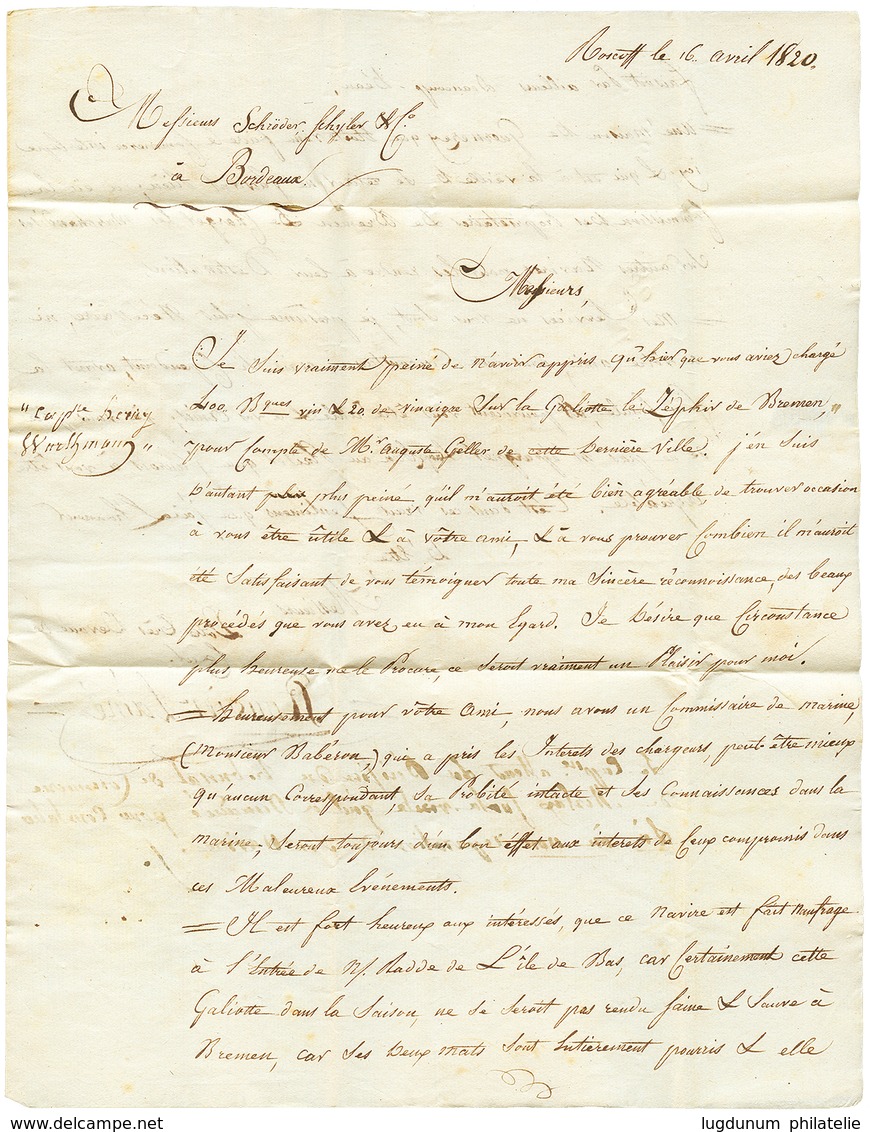 Roscoff le 16. avril 1820.
Messieurs Schröder, Schyler & Co.
à Bordeaux.
Messieurs,
Je suis vraiment peiné de n'avoir appris qu'hier que vous aviez chargé
400 Bques vin & 20. de vinaigre sur la Galiotte le Zéphir de Bremen,
" Capte. henry
Wurthmann "
pour Compte de Mr. Auguste Geller de cette Dernière Ville. j'en suis
D'autant plus peiné qu'il m'auroit été bièn agréable de trouver occasion
à vous être ûtile & à vôtre ami, & à vous prouver Combien il m'auroit
été satisfaisant de vous témoigner toute ma sincère réconnoissance, des beaux
procédés que vous avez eu à mon Egard. Je Désire que Circonstance
plus heureuse me le Procure, ce seroit vraiment un Plaisir pour moi.
= heureusement pour vôtre ami, nous avons un Commissaire de marine,
(Monsieur Babéron,) que a pris les Interets des chargeurs, peut-être mieux
qu'aucun Correspondant, sa Probité intacte et ses Connaissances dans la
marine, seront toujours d'un bon éffet aux interets de Ceux compromis dans
ces Maleureux Evénements.
= Il est fort heureux aux intéressés, que ce Navire est fait Naufrage
à l'Entrée de N/ Radde de L'île de Bas, car Certainement cette
Galiotte dans la Saison, ne se seroit pas rendu saine & sauve à
Bremen, car ses Deux mats sont Entièrement pourris & elle
www.delcampe.net
lugdunum philatelie